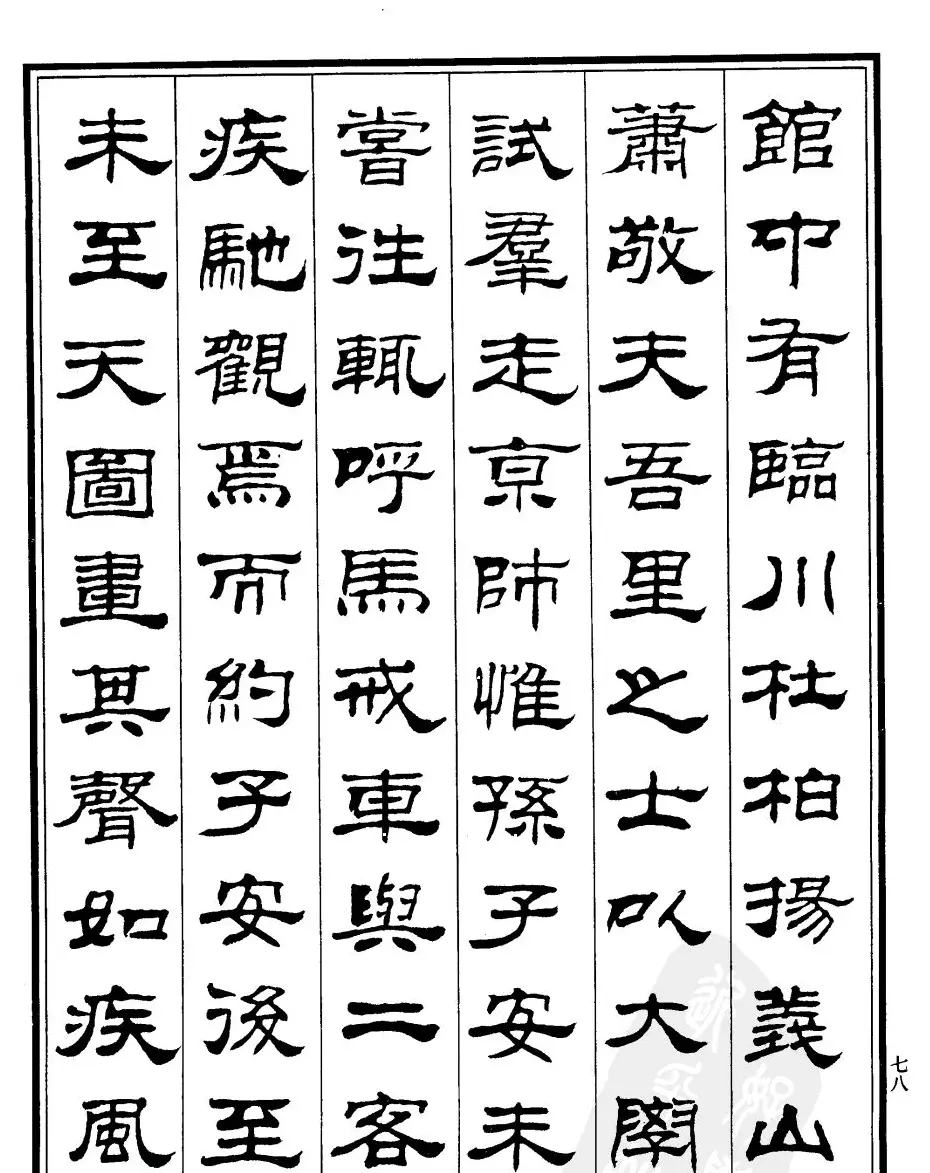 館中有臨川杜柏揚義山
蕭敬夫吾里之士以大學
試羣走京師惟孫子安未
嘗往輒呼馬戒車與二客
疾馳觀焉而約子安後至
未至天圖畫其聲如疾風
七八